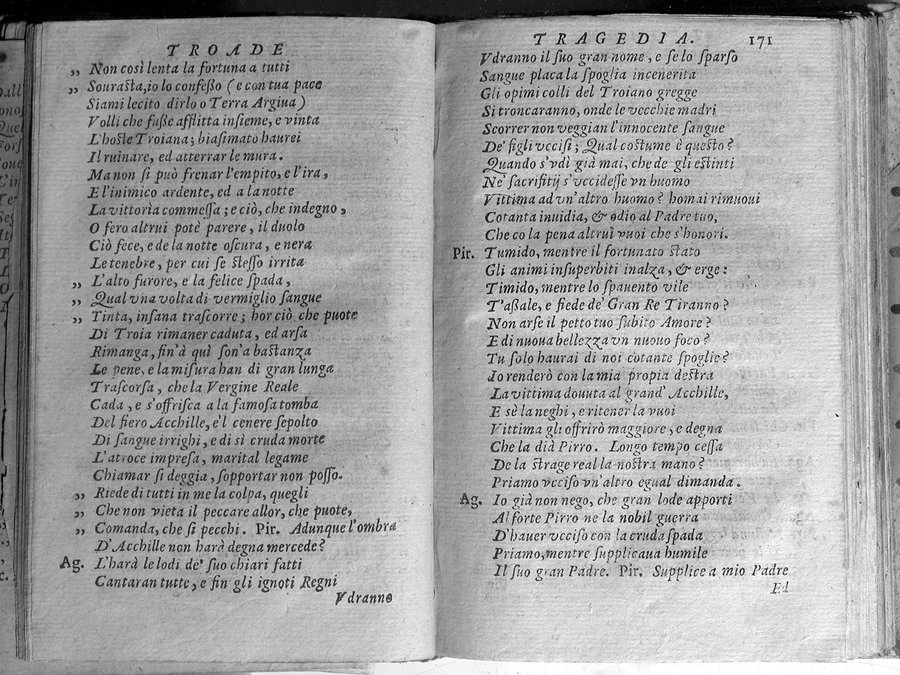 TROADE
„ Non così lenta la fortuna a tutti
„ Sourasta, io lo confesso (e con tua pace
Siami lecito dirlo o Terra Argiua)
Volli che fusse afflitta insieme, e vinta
L'hoste Troiana; biasimato haurei
Il ruinare, ed atterrar le mura.
Ma non si può frenar l'empito, e l'ira,
E l'inimico ardente, ed a la notte
La vittoria commessa; e ciò, che indegno,
O fero altrui potè parere, il duolo
Ciò fece, e de la notte oscura, e nera
Le tenebre, per cui se stesso irrita
„ L'alto furore, e la felice spada,
„ Qual vna volta di vermiglio sangue
„ Tinta, insana trascorre; hor ciò che puote
Di Troia rimaner caduta, ed arsa
Rimanga, fin'à quì son'a bastanza
Le pene, e la misura han di gran lunga
Trascorsa, che la Vergine Reale
Cada, e s'offrisca a la famosa tomba
Del fiero Acchille, e'l cenere sepolto
Di sangue irrighi, e di sì cruda morte
L'atroce impresa, marital legame
Chiamar si deggia, sopportar non posso.
„ Riede di tutti in me la colpa, quegli
„ Che non vieta il peccare allor, che puote,
„ Comanda, che si pecchi. Pir. Adunque l'ombra
D'Acchille non harà degna mercede?
Ag. L'harà le lodi de' suo chiari fatti
Cantaran tutte, e fin gli ignoti Regni
Vdranno
TRAGEDIA. 171
Vdranno il suo gran nome, e se lo sparso
Sangue placa la spoglia incenerita
Gli opimi colli del Troiano gregge
Si troncaranno, onde le vecchie madri
Scorrer non veggian l'innocente sangue
De' figli vccisi; Qual costume è questo?
Quando s'vdì già mai, che de gli estinti
Ne' sacrifitij s'vccidesse vn huomo
Vittima ad vn'altro huomo? homai rimuoui
Cotanta inuidia, & odio al Padre tuo,
Che co la pena altrui vuoi che s'honori.
Pir. Tumido, mentre il fortunato stato
Gli animi insuperbiti inalza, & erge:
Timido, mentre lo spauento vile
T'assale, e fiede de' Gran Re Tiranno?
Non arse il petto tuo subito Amore?
E di nuoua bellezza vn nuouo foco?
Tu solo haurai di noi cotante spoglie?
Io renderò con la mia propia destra
La vittima douuta al grand' Acchille,
E sè la neghi, e ritener la vuoi
Vittima gli offrirò maggiore, e degna
Che la dià Pirro. Longo tempo cessa
De la strage real la nostra mano?
Priamo vcciso vn'altro egual dimanda.
Ag. Io già non nego, che gran lode apporti
Al forte Pirro ne la nobil guerra
D'hauer vcciso con la cruda spada
Priamo, mentre supplicaua humile
Il suo gran Padre. Pir. Supplice a mio Padre
Ed